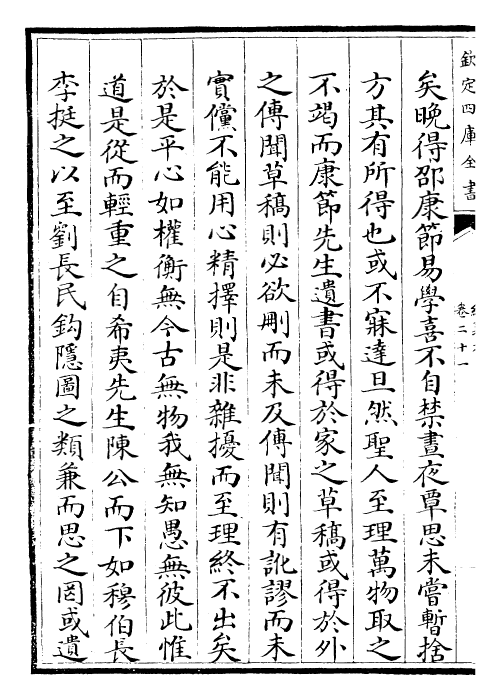 欽定四庫全書
卷二十一
矣晚得邵康節易學喜不自禁晝夜覃思未嘗暫捨
方其有所得也或不寐達旦然聖人至理萬物取之
不竭而康節先生遺書或得於家之草稿或得於外
之傳聞草稿則必欲刪而未及傳聞則有訛謬而未
實儻不能用心精擇則是非雜擾而至理終不出矣
於是平心如權衡無今古無物我無知愚無彼此惟
道是從而輕重之自希夷先生陳公而下如穆伯長
李挺之以至劉長民鈎隱圖之類兼而思之罔或遺